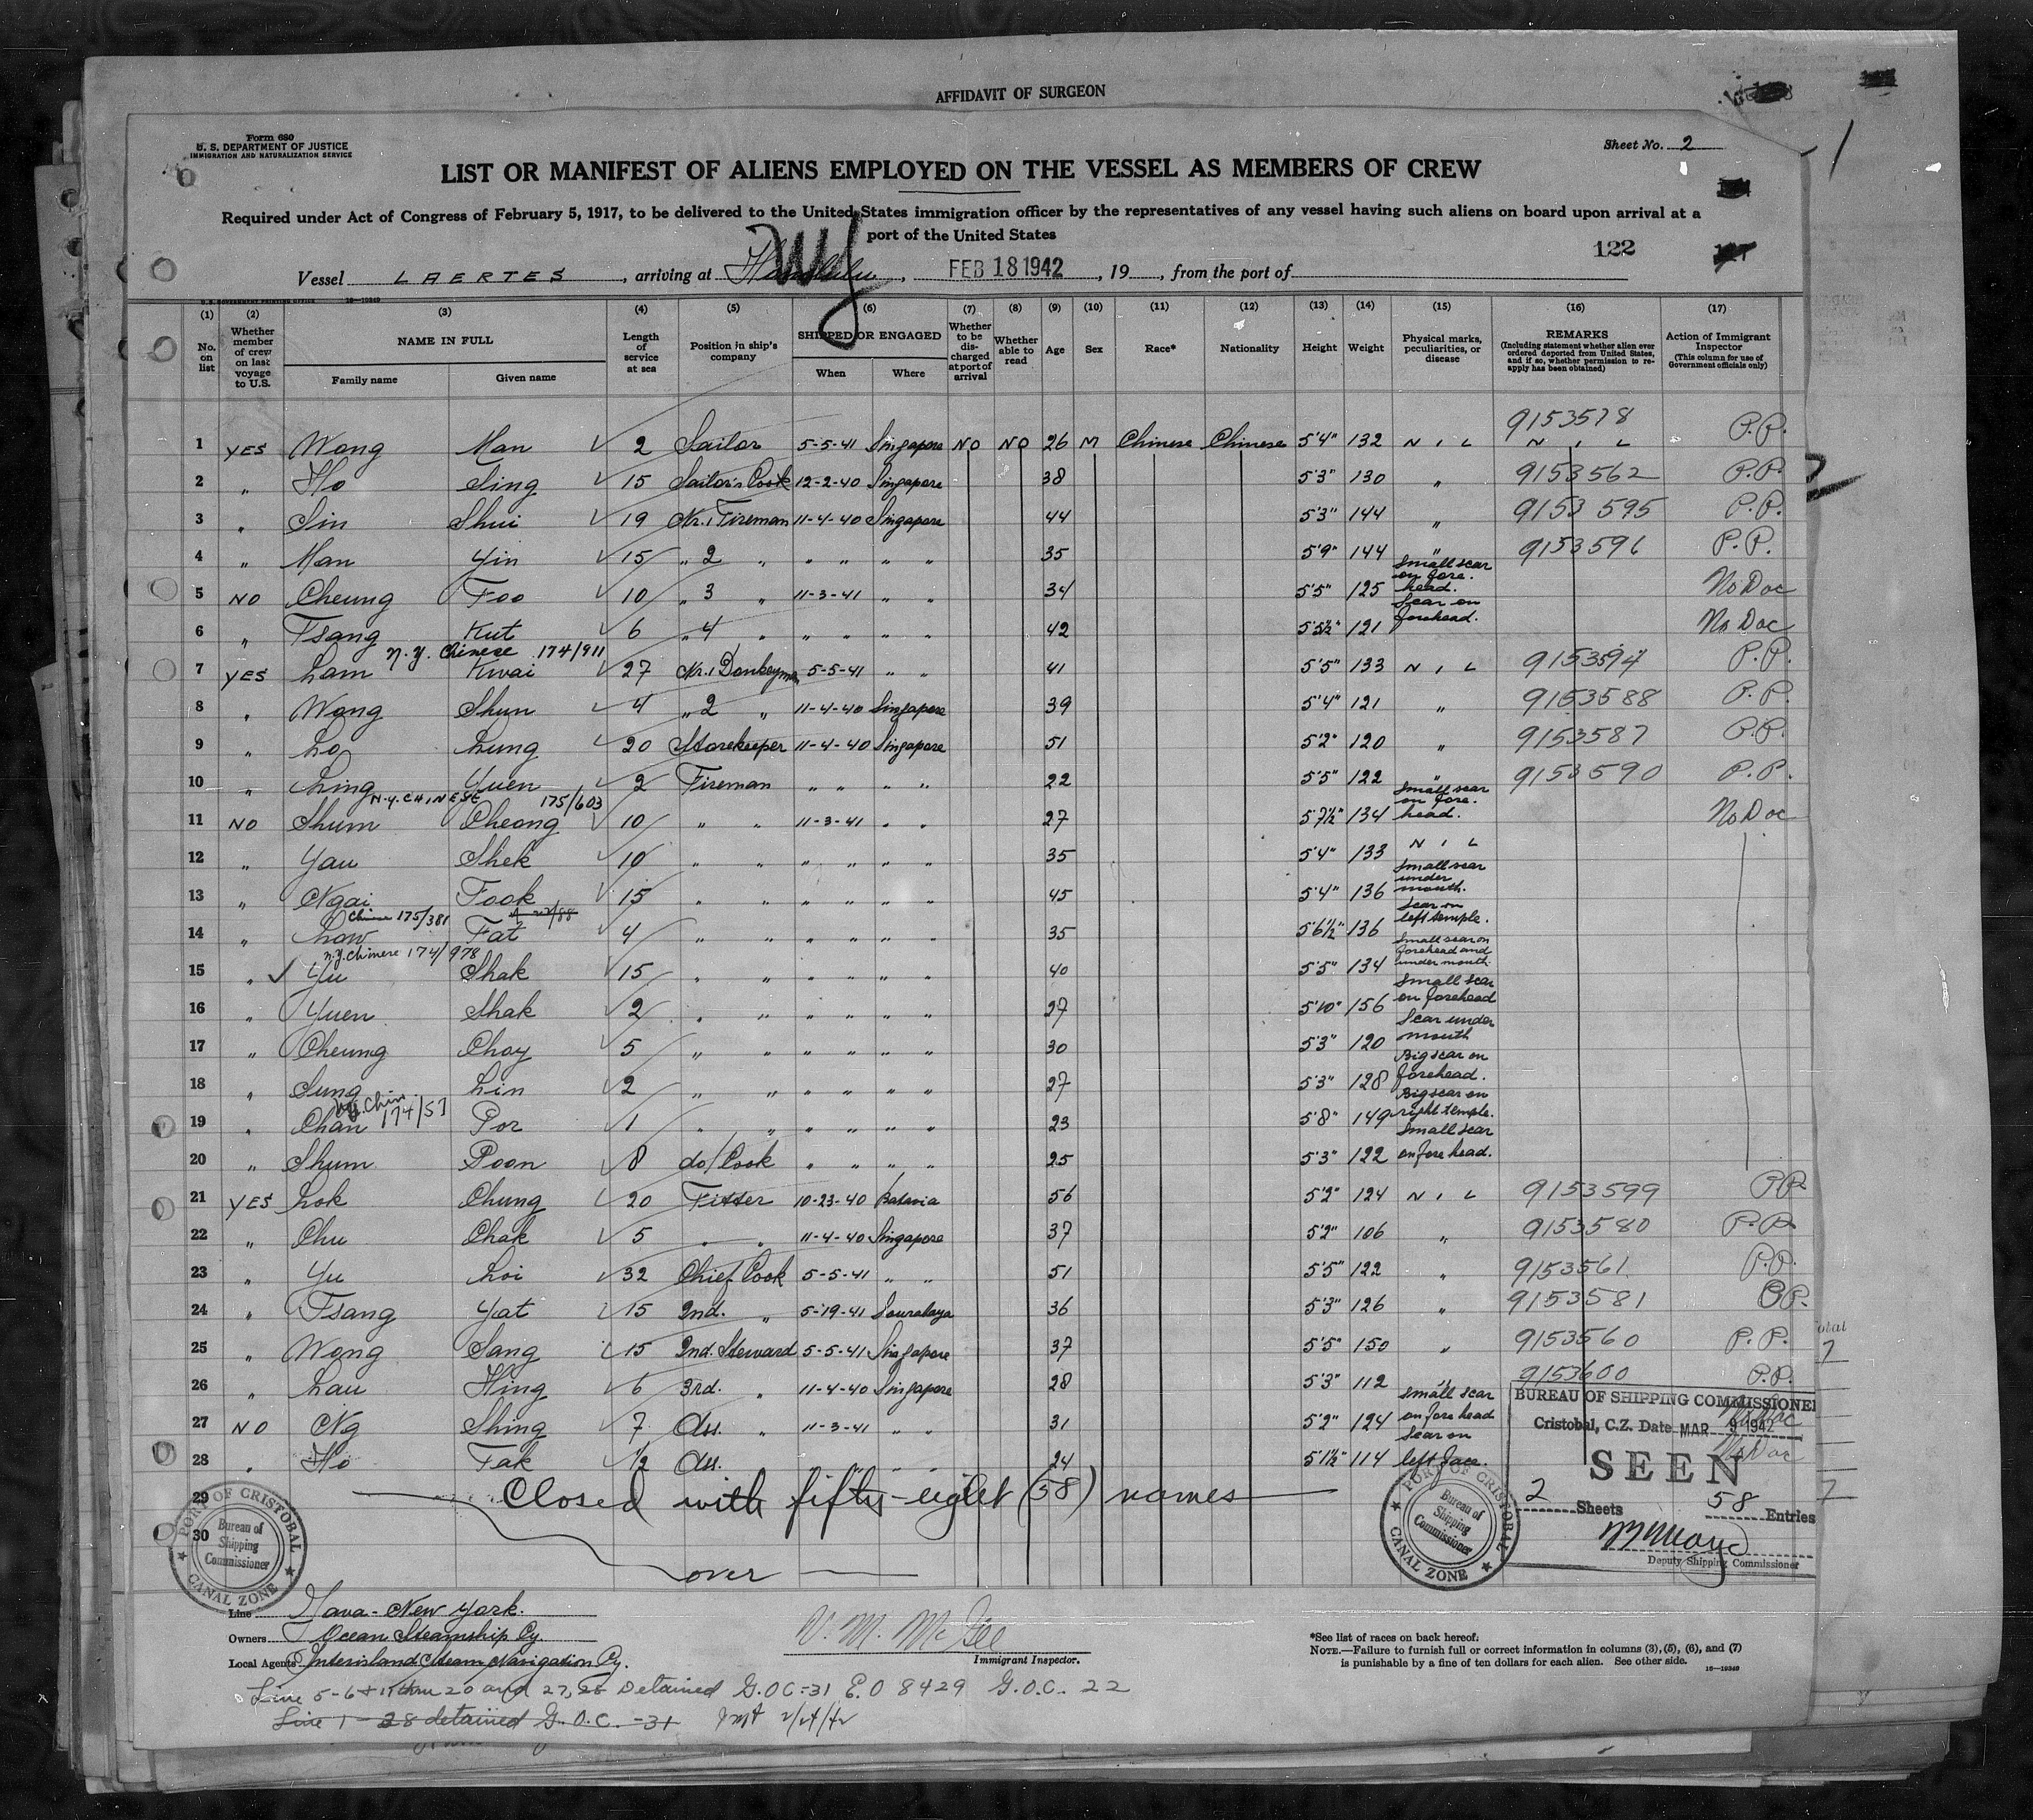 AFFIDAVIT OF SURGEON
Form 680
U. S. DEPARTMENT OF JUSTICE
IMMIGRATION AND NATURALIZATION SERVICE
Sheet No. 2
LIST OR MANIFEST OF ALIENS EMPLOYED ON THE VESSEL AS MEMBERS OF CREW
Required under Act of Congress of February 5, 1917, to be delivered to the United States immigration officer by the representatives of any vessel having such aliens on board upon arrival at a
port of the United States
122
Vessel LAERTES, arriving at Honolulu, FEB 18 1942, 19, from the port of
(1) No. on list
(2) Whether member of crew on last voyage to U.S.
(3) NAME IN FULL Family name Given name
(4) Length of service at sea
(5) Position in ship's company
(6) SHIPPED OR ENGAGED When Where
(7) Whether to be discharged at port of arrival
(8) Whether able to read
(9) Age
(10) Sex
(11) Race*
(12) Nationality
(13) Height
(14) Weight
(15) Physical marks, peculiarities, or disease
(16) REMARKS (Including statement whether alien ever ordered deported from United States, and if so, whether permission to reapply has been obtained)
(17) Action of Immigrant Inspector (This column for use of Government officials only)
1 YES Wong Man 2 Sailor 5-5-41 Singapore NO NO 26 M Chinese Chinese 5'4" 132 NIL 9153578 NIL P.P.
2 " Ho Sing 15 Sailor's Cook 12-2-40 Singapore 38 5'3" 130 " 9153562 P.P.
3 " Sin Shui 19 Nr.1 Fireman 11-4-40 Singapore 44 5'3" 144 " 9153595 P.P.
4 " Man Yin 15 " 2 " " " " " 35 5'9" 144 " 9153596 P.P.
5 NO Cheung Foo 10 " 3 " 11-3-41 " " 34 5'5" 125 Small scar on forehead. No Doc
6 " Tsang Kut 6 " 4 " " " " " 42 5'5½" 121 Scar on forehead. No Doc
N.Y. Chinese 174/911
7 YES Lam Kwai 27 Nr.1 Donkeyman 5-5-41 " " 41 5'5" 133 NIL 9153594 P.P.
8 " Wong Shun 4 " 2 " 11-4-40 Singapore 39 5'4" 121 " 9153588 P.P.
9 " Lo Lung 20 Storekeeper 11-4-40 Singapore 51 5'2" 120 " 9153587 P.P.
10 " Ling Yuen 2 Fireman " " " " 22 5'5" 122 " 9153590 P.P.
N.Y. CHINESE 175/603
11 NO Shum Cheong 10 " " 11-3-41 " " 27 5'7½" 134 Small scar on forehead. No Doc
12 " Yau Shek 10 " " " " " " 35 5'4" 133 NIL
13 " Ngai Fook 15 " " " " " " 45 5'4" 136 Small scar under mouth.
Chinese 175/381
14 " Low Fat 4 " " " " " " 35 5'6½" 136 Scar on left temple.
N.Y. Chinese 174/978
15 " Yu Shak 15 " " " " " " 40 5'5" 134 Small scar on forehead and under mouth.
16 " Yuen Shak 2 " " " " " " 27 5'10" 156 Small scar on forehead
17 " Cheung Choy 5 " " " " " " 30 5'3" 120 Scar under mouth
18 " Sung Lin 2 " " " " " " 27 5'3" 128 Big scar on forehead.
N.Y. Chin. 174/57
19 " Chan Por 1 " " " " " " 23 5'8" 149 Big scar on right temple.
20 " Shum Poon 8 do/Cook " " " " 25 5'3" 122 Small scar on forehead.
21 YES Lok Chung 20 Fitter 10-23-40 Batavia 56 5'2" 124 NIL 9153599 P.P.
22 " Chu Chak 5 " " 11-4-40 Singapore 37 5'2" 106 " 9153580 P.P.
23 " Yu Loi 32 Chief Cook 5-5-41 " " 51 5'5" 122 " 9153561 P.P.
24 " Tsang Yat 15 2nd. " 5-19-41 Sourabaya 36 5'3" 126 " 9153581 P.P.
25 " Wong Sang 15 2nd. Steward 5-5-41 Singapore 37 5'5" 150 " 9153560 P.P.
26 " Lau Hing 6 3rd. " 11-4-40 Singapore 28 5'3" 112 " 9153600 P.P.
27 NO Ng Shing 7 Ass. " 11-3-41 " " 31 5'2" 124 Small scar on forehead No Doc
28 " Ho Fak ½ Ass. " " " 24 5'1½" 114 Scar on left face. No Doc
29 Closed with fifty-eight (58) names
30
over
BUREAU OF SHIPPING COMMISSIONER
Cristobal, C.Z. Date MAR 9 1942
SEEN
2 Sheets 58 Entries
Deputy Shipping Commissioner
PORT OF CRISTOBAL
Bureau of Shipping Commissioner
CANAL ZONE
PORT OF CRISTOBAL
Bureau of Shipping Commissioner
CANAL ZONE
Line Java - New York.
Owners Ocean Steamship Cy.
Local Agents Interisland Steam Navigation Cy.
V. M. McGee
Immigrant Inspector.
*See list of races on back hereof.
NOTE.—Failure to furnish full or correct information in columns (3), (5), (6), and (7)
is punishable by a fine of ten dollars for each alien. See other side.
16—19349
Line 5-6 + 11 thru 20 and 27, 28 Detained G.O.C-31 E.O 8429 G.O.C. 22
Line 1-28 detained G.O.C.-31